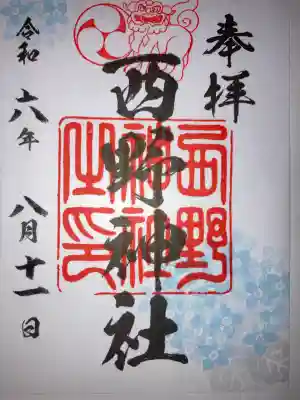 奉拝
西野神社
西野
神社
之印
令和六年 八月十一日